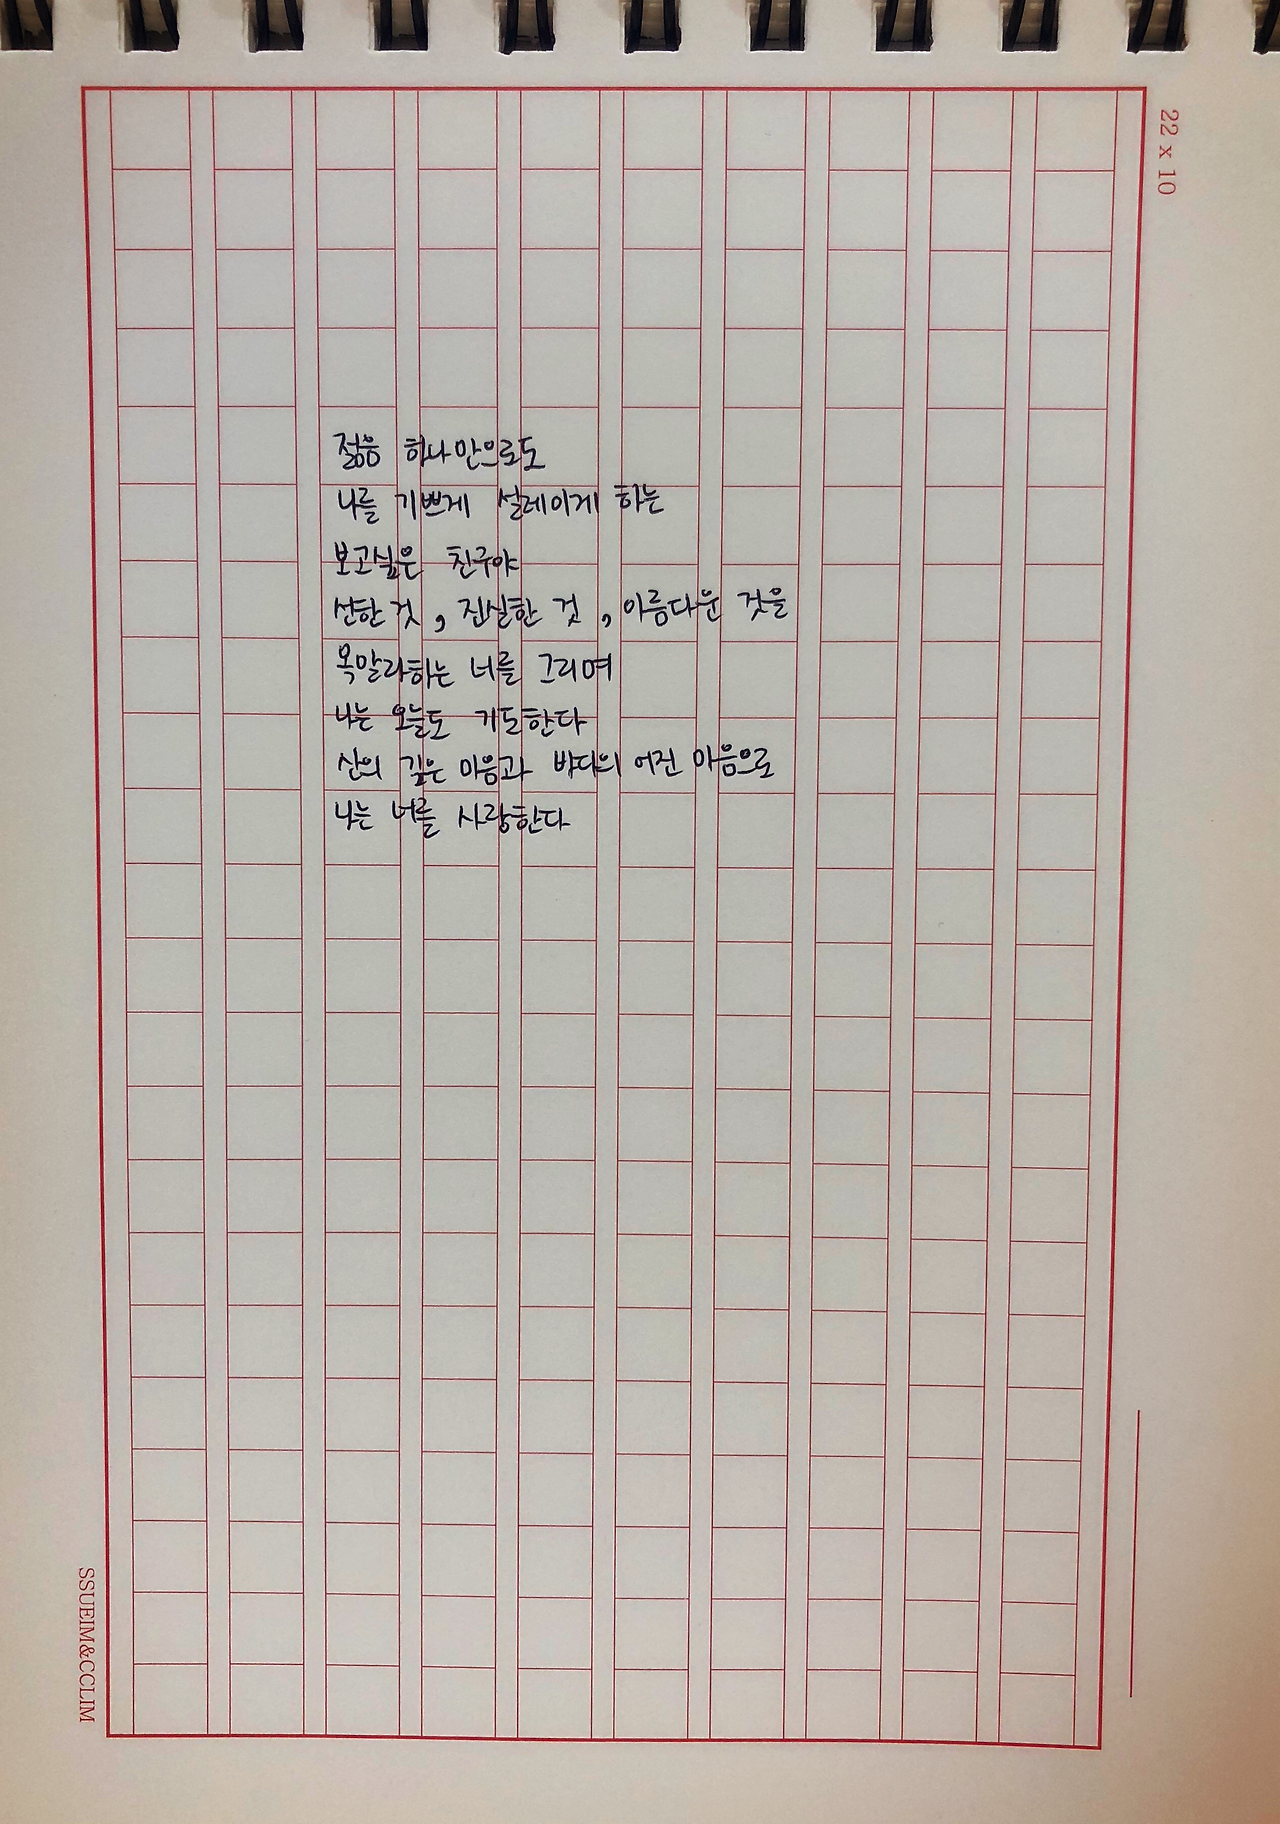 22 x 10
젊음 하나만으로도
나를 기쁘게 설레이게 하는
보고싶은 친구야
선한 것, 진실한 것, 아름다운 것을
목말라하는 너를 그리며
나는 오늘도 기도한다
산의 깊은 마음과 바다의 어진 마음으로
나는 너를 사랑한다
SSUEIM&CCLIM